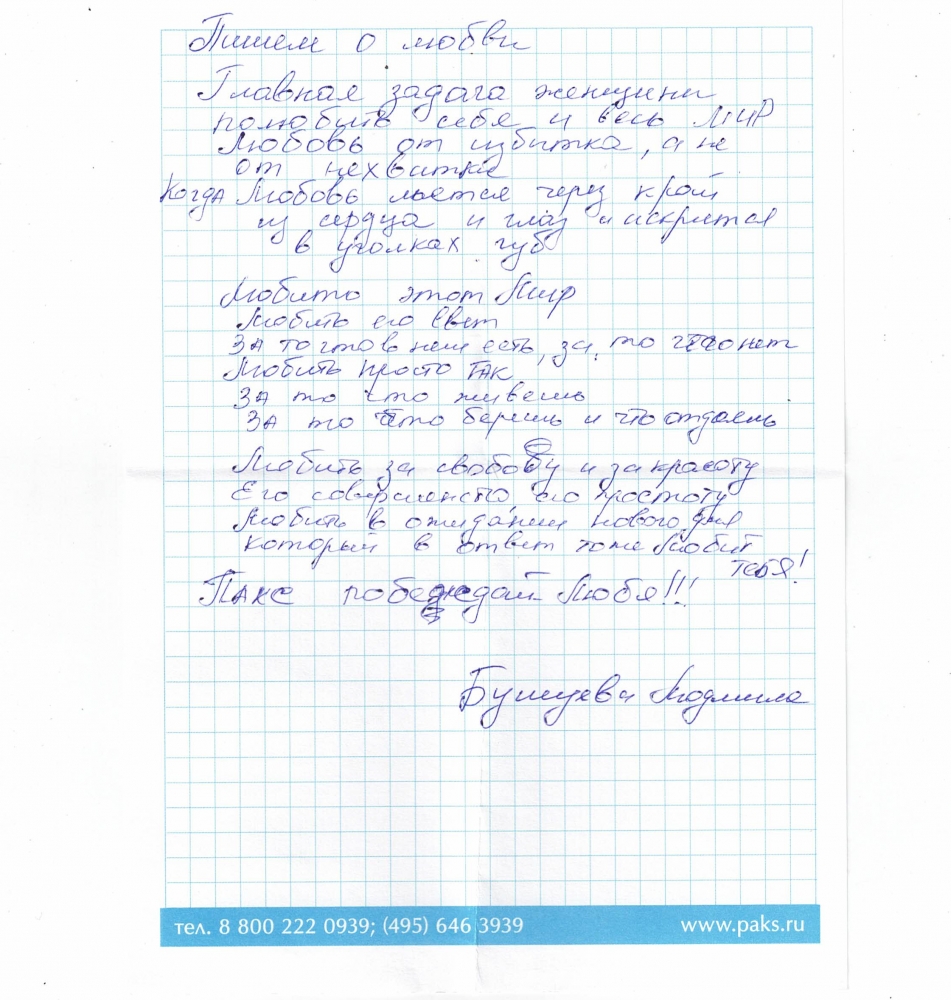 Пишем о любви
Главная задача женщины
полюбить себя и весь МИР
Любовь от избытка, а не
от нехватки
Когда Любовь льется через край
из сердца и глаз и искрится
в уголках губ
Любить этот Мир
Любить его свет
ЗА то что в нем есть, за то чего нет
Любить просто ТАК
ЗА то что живешь
ЗА то что берешь и что отдаешь
Любить за свободу и за красоту
Его совершенство его простоту
Любить в ожидании нового дня
который в ответ тоже Любит
ТЕБЯ!
ПАКС побеждай Любя!!!
Бушуева Людмила
тел. 8 800 222 0939; (495) 646 3939
www.paks.ru